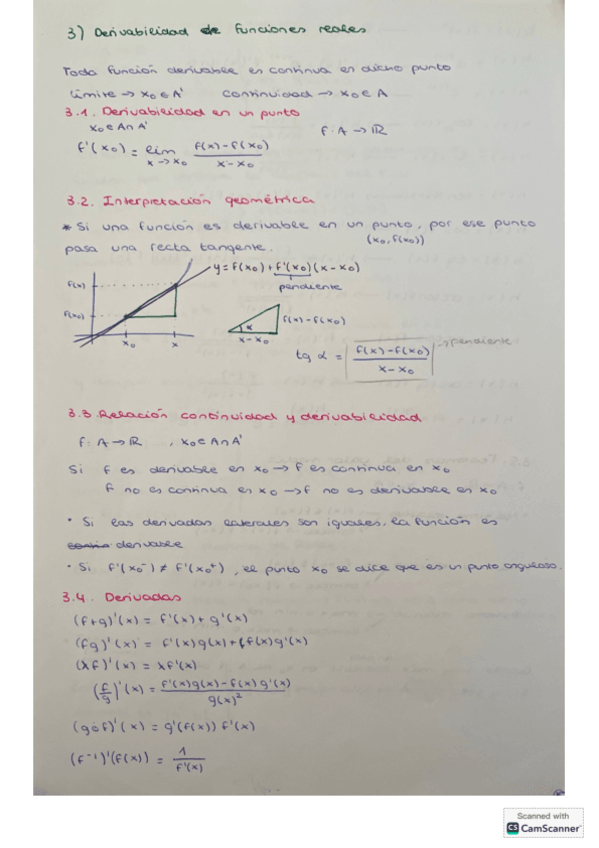 3) Derivabilidad de funciones reales
Toda función derivable es continua en dicho punto
Límite → x₀ ∈ A' Continuidad → x₀ ∈ A
3.1. Derivabilidad en un punto
x₀ ∈ A ∩ A' f: A → ℝ
f'(x₀) = lim x→x₀ (f(x) - f(x₀)) / (x - x₀)
3.2. Interpretación geométrica
* Si una función es derivable en un punto, por ese punto
(x₀, f(x₀))
pasa una recta tangente.
y = f(x₀) + f'(x₀)(x - x₀)
pendiente
f(x)
f(x₀)
x₀ x
f(x) - f(x₀)
α
x - x₀
tg α = (f(x) - f(x₀)) / (x - x₀) → pendiente
3.3. Relación continuidad y derivabilidad
f: A → ℝ , x₀ ∈ A ∩ A'
Si f es derivable en x₀ → f es continua en x₀
f no es continua en x₀ → f no es derivable en x₀
· Si las derivadas laterales son iguales, la función es
derivable
· Si f'(x₀⁻) ≠ f'(x₀⁺), el punto x₀ se dice que es un punto anguloso.
3.4. Derivadas
(f+g)'(x) = f'(x) + g'(x)
(fg)'(x) = f'(x)g(x) + f(x)g'(x)
(λf)'(x) = λf'(x)
(f/g)'(x) = (f'(x)g(x) - f(x)g'(x)) / g(x)²
(g∘f)'(x) = g'(f(x)) f'(x)
(f⁻¹)'(f(x)) = 1 / f'(x)
Scanned with
CS CamScanner